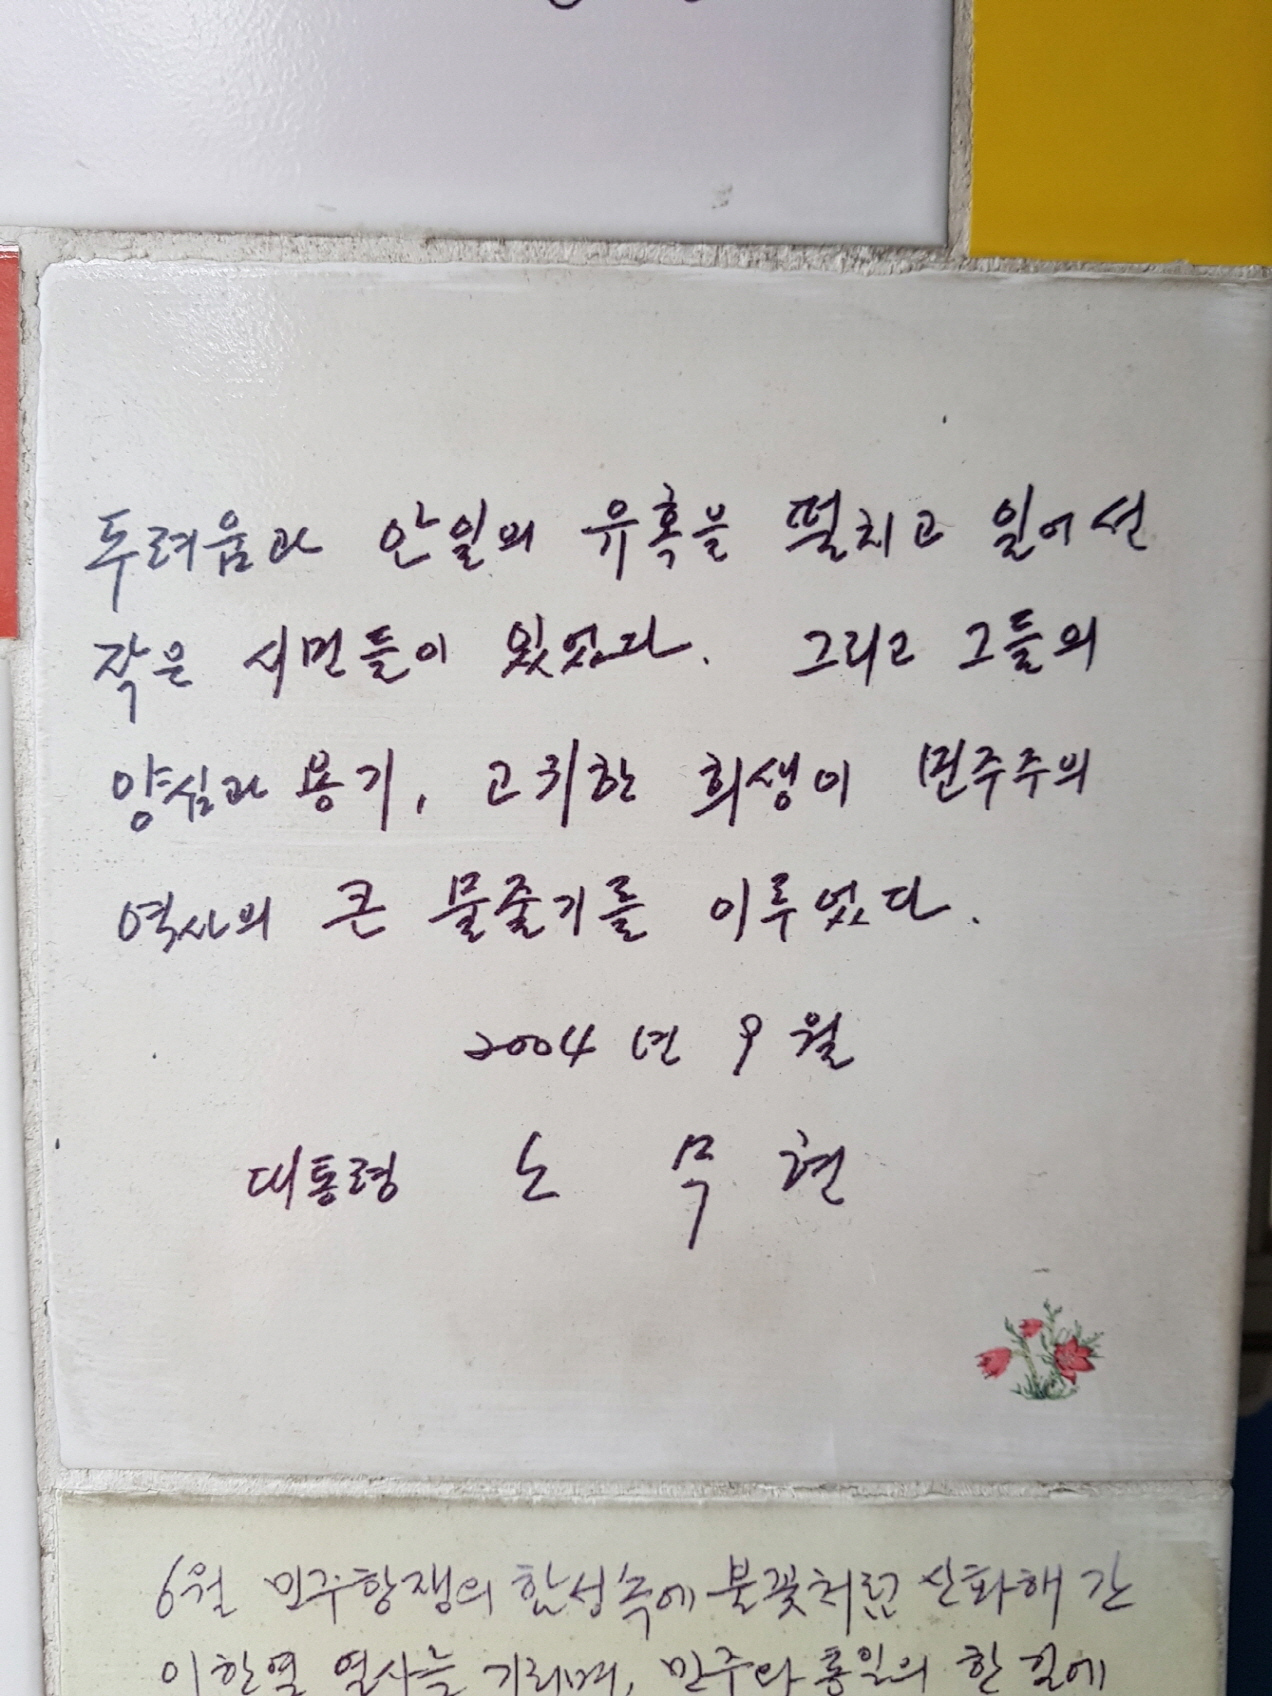 두려움과 안일의 유혹을 떨치고 일어선
작은 시민들이 있었다. 그리고 그들의
양심과 용기, 고귀한 희생이 민주주의
역사의 큰 물줄기를 이루었다.
2004년 9월
대통령 노무현
6월 민주항쟁의 함성속에 불꽃처럼 산화해 간
이한열 열사를 기리며, 민주와 통일의 한 길에